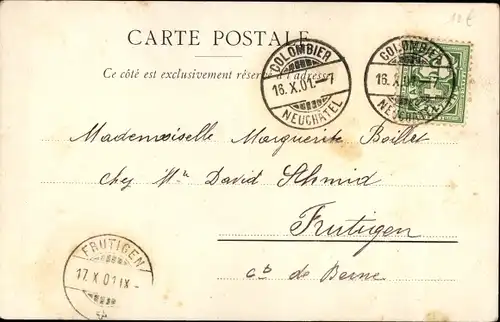 12€
CARTE POSTALE
Ce côté est exclusivement réservé à l'adresse.
COLOMBIER
16.X.01.-7
NEUCHÂTEL
COLOMBIER
16.X.01.-7
NEUCHÂTEL
Mademoiselle Marguerite Boillet
chez Mr. David Schmid
Frutigen
ct. de Berne
FRUTIGEN
17.X.01.IX-